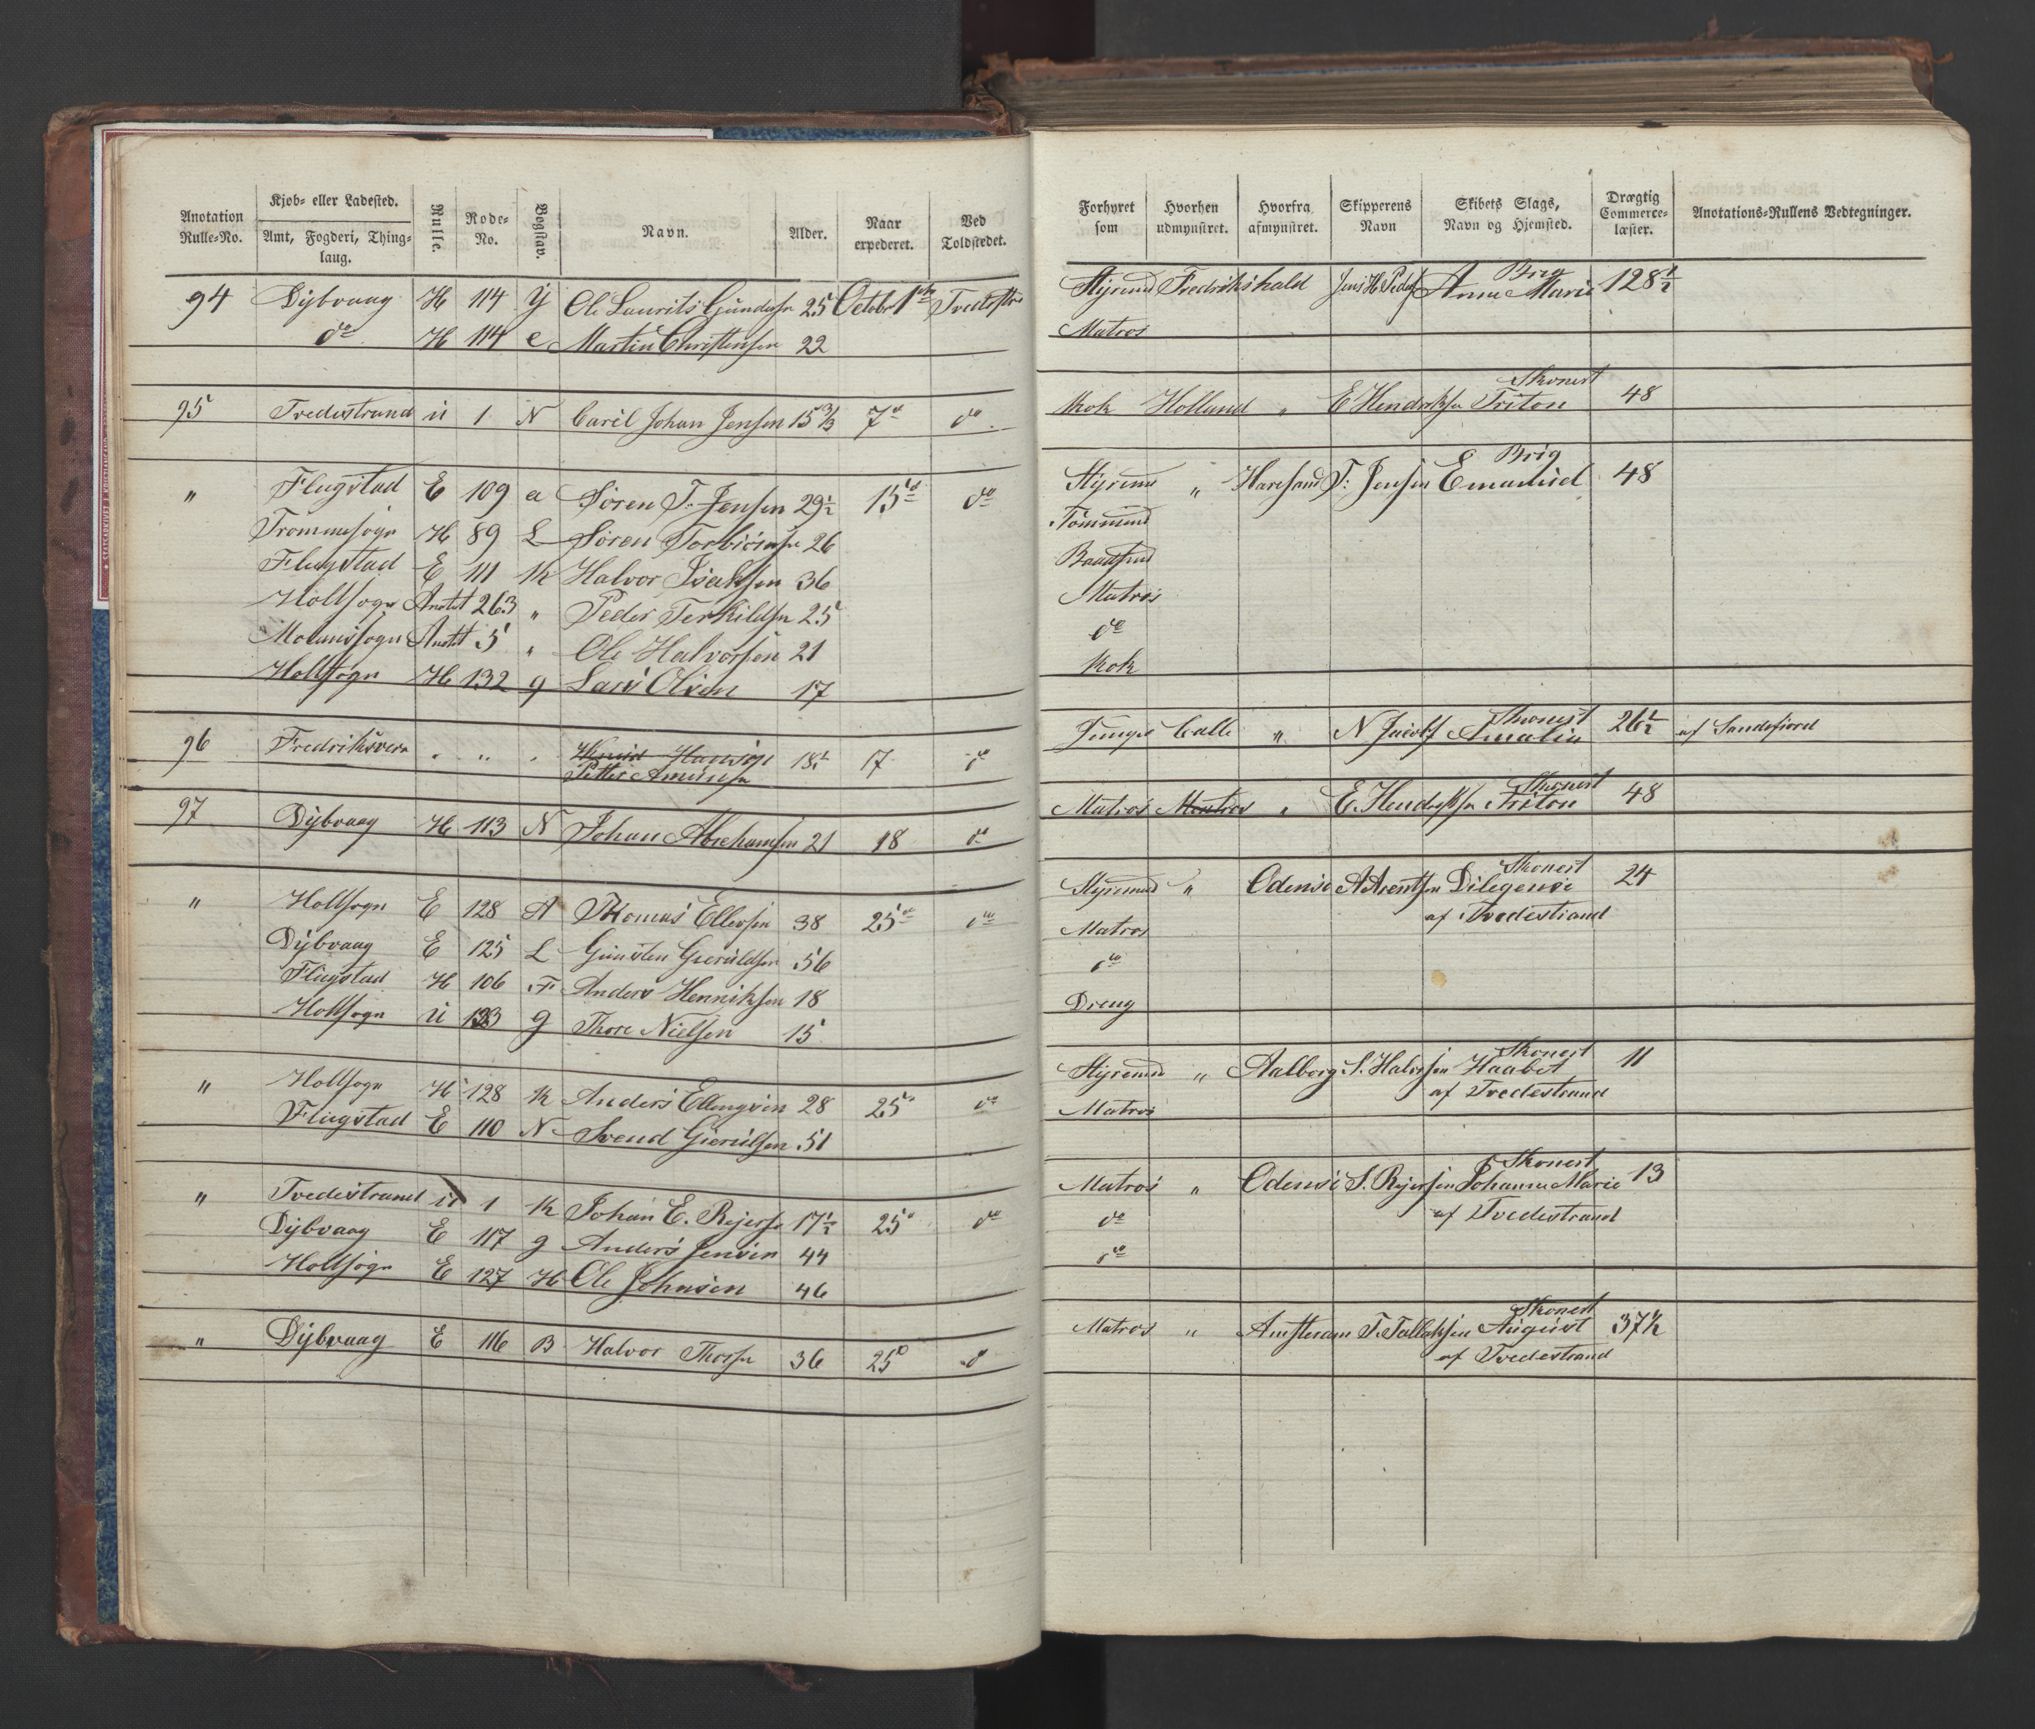 Anotation Rulle-No. Kjøb- eller Ladested. Amt, Fogderi, Thinglaug. Rulle. Rode-No. Bogstav. Navn. Alder. Naar expederet. Ved Toldstedet.
94 Dybvaag H 114 Ole Laurits 25 Octobr 1
do H 114 e Martin Christensen 22
95 Tvedestrand U 1 N Carel Johan Jensen 15 7 do
" Flugstad E 109 a Søren T. Jensen 29½ 15 do
Trommesogn H 89 L Søren 26
Flugstad E 111 K Halvor Isaksen 36
Holtsogn Anott 263 " Peder Terkildsn 25
Anott 5 " Ole Halvorsen 21
Holtsogn H 132 g Lars Olsen 17
96 Fredriksværn " " " 18½ 17 do
Petter
97 Dybvaag H 113 N Johan Abrahamsen 21 18 do
" Holtsogn E 128 A Thomas Ellefsen 38 25 do
Dybvaag E 125 L Gunsten Gieruldsn 56
Flugstad H 106 F Anders Henriksen 18
Holtsogn U g Thore Nielsen 15
" Holtsogn H 128 K Anders Ellingsen 28 25 do
Flugstad E 110 N Svend Gierulsen 51
" Tvedestrand U 1 K Johan E. Rejersn 17½ 25 do
Dybvaag E 117 g Anders Jensen 44
Holtsogn E 127 H Ole Johnsen 46
" Dybvaag E 116 B Halvor Thorsn 36 25 do
Forhyret som Hvorhen udmynstret. Hvorfra afmynstret. Skipperens Navn Skibets Slags, Navn og Hjemsted. Drægtig Commerce-læster. Anotations-Rullens Vedtegninger.
Styrmd Fredrikshald Jens H Peders Brig Anne Marie 128½
Matros
Kok Holland " E Hendriksn Skonert Triton 48
Styrmd " T. Jensen Brig Emanuel 48
Tømmmd
Baadsmd
Matros
do
Kok
" N Jacobs Skonert Amalia 26½ af Sandefiord
Matros Matros " E. Hendriksn Skonert Triton 48
Styrmd " Odense A Arentsen Skonert Diligense 24
Matros af Tvedestrand
do
Dreng
Styrmd " Aalborg S. Halvorsen Skonert Haabet 11
Matros af Tvedestrand
Matros " Odense S. Rejersen Skonert Johanne Marie 13
do af Tvedestrand
do
Matros " Amsteram T. Tallaksen Skonert August 37½
af Tvedestrand